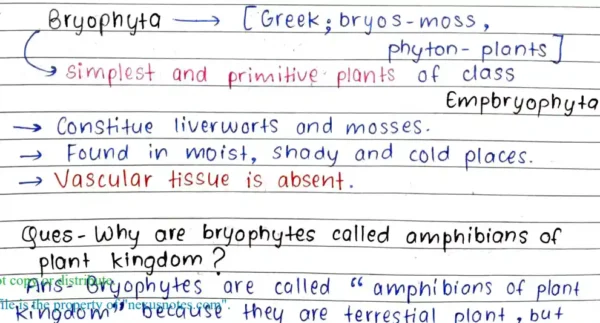 Bryophyta → [Greek; bryos-moss,
phyton-plants]
simplest and primitive plants of class
Empbryophyta
→ Constitue liverworts and mosses.
→ Found in moist, shady and cold places.
→ Vascular tissue is absent.
Ques- Why are bryophytes called amphibians of
plant kingdom?
Ans- Bryophytes are called "amphibians of plant
kingdom" because they are terrestial plant, but
ot copy or distribute
is the property of "nexusnotes.com".